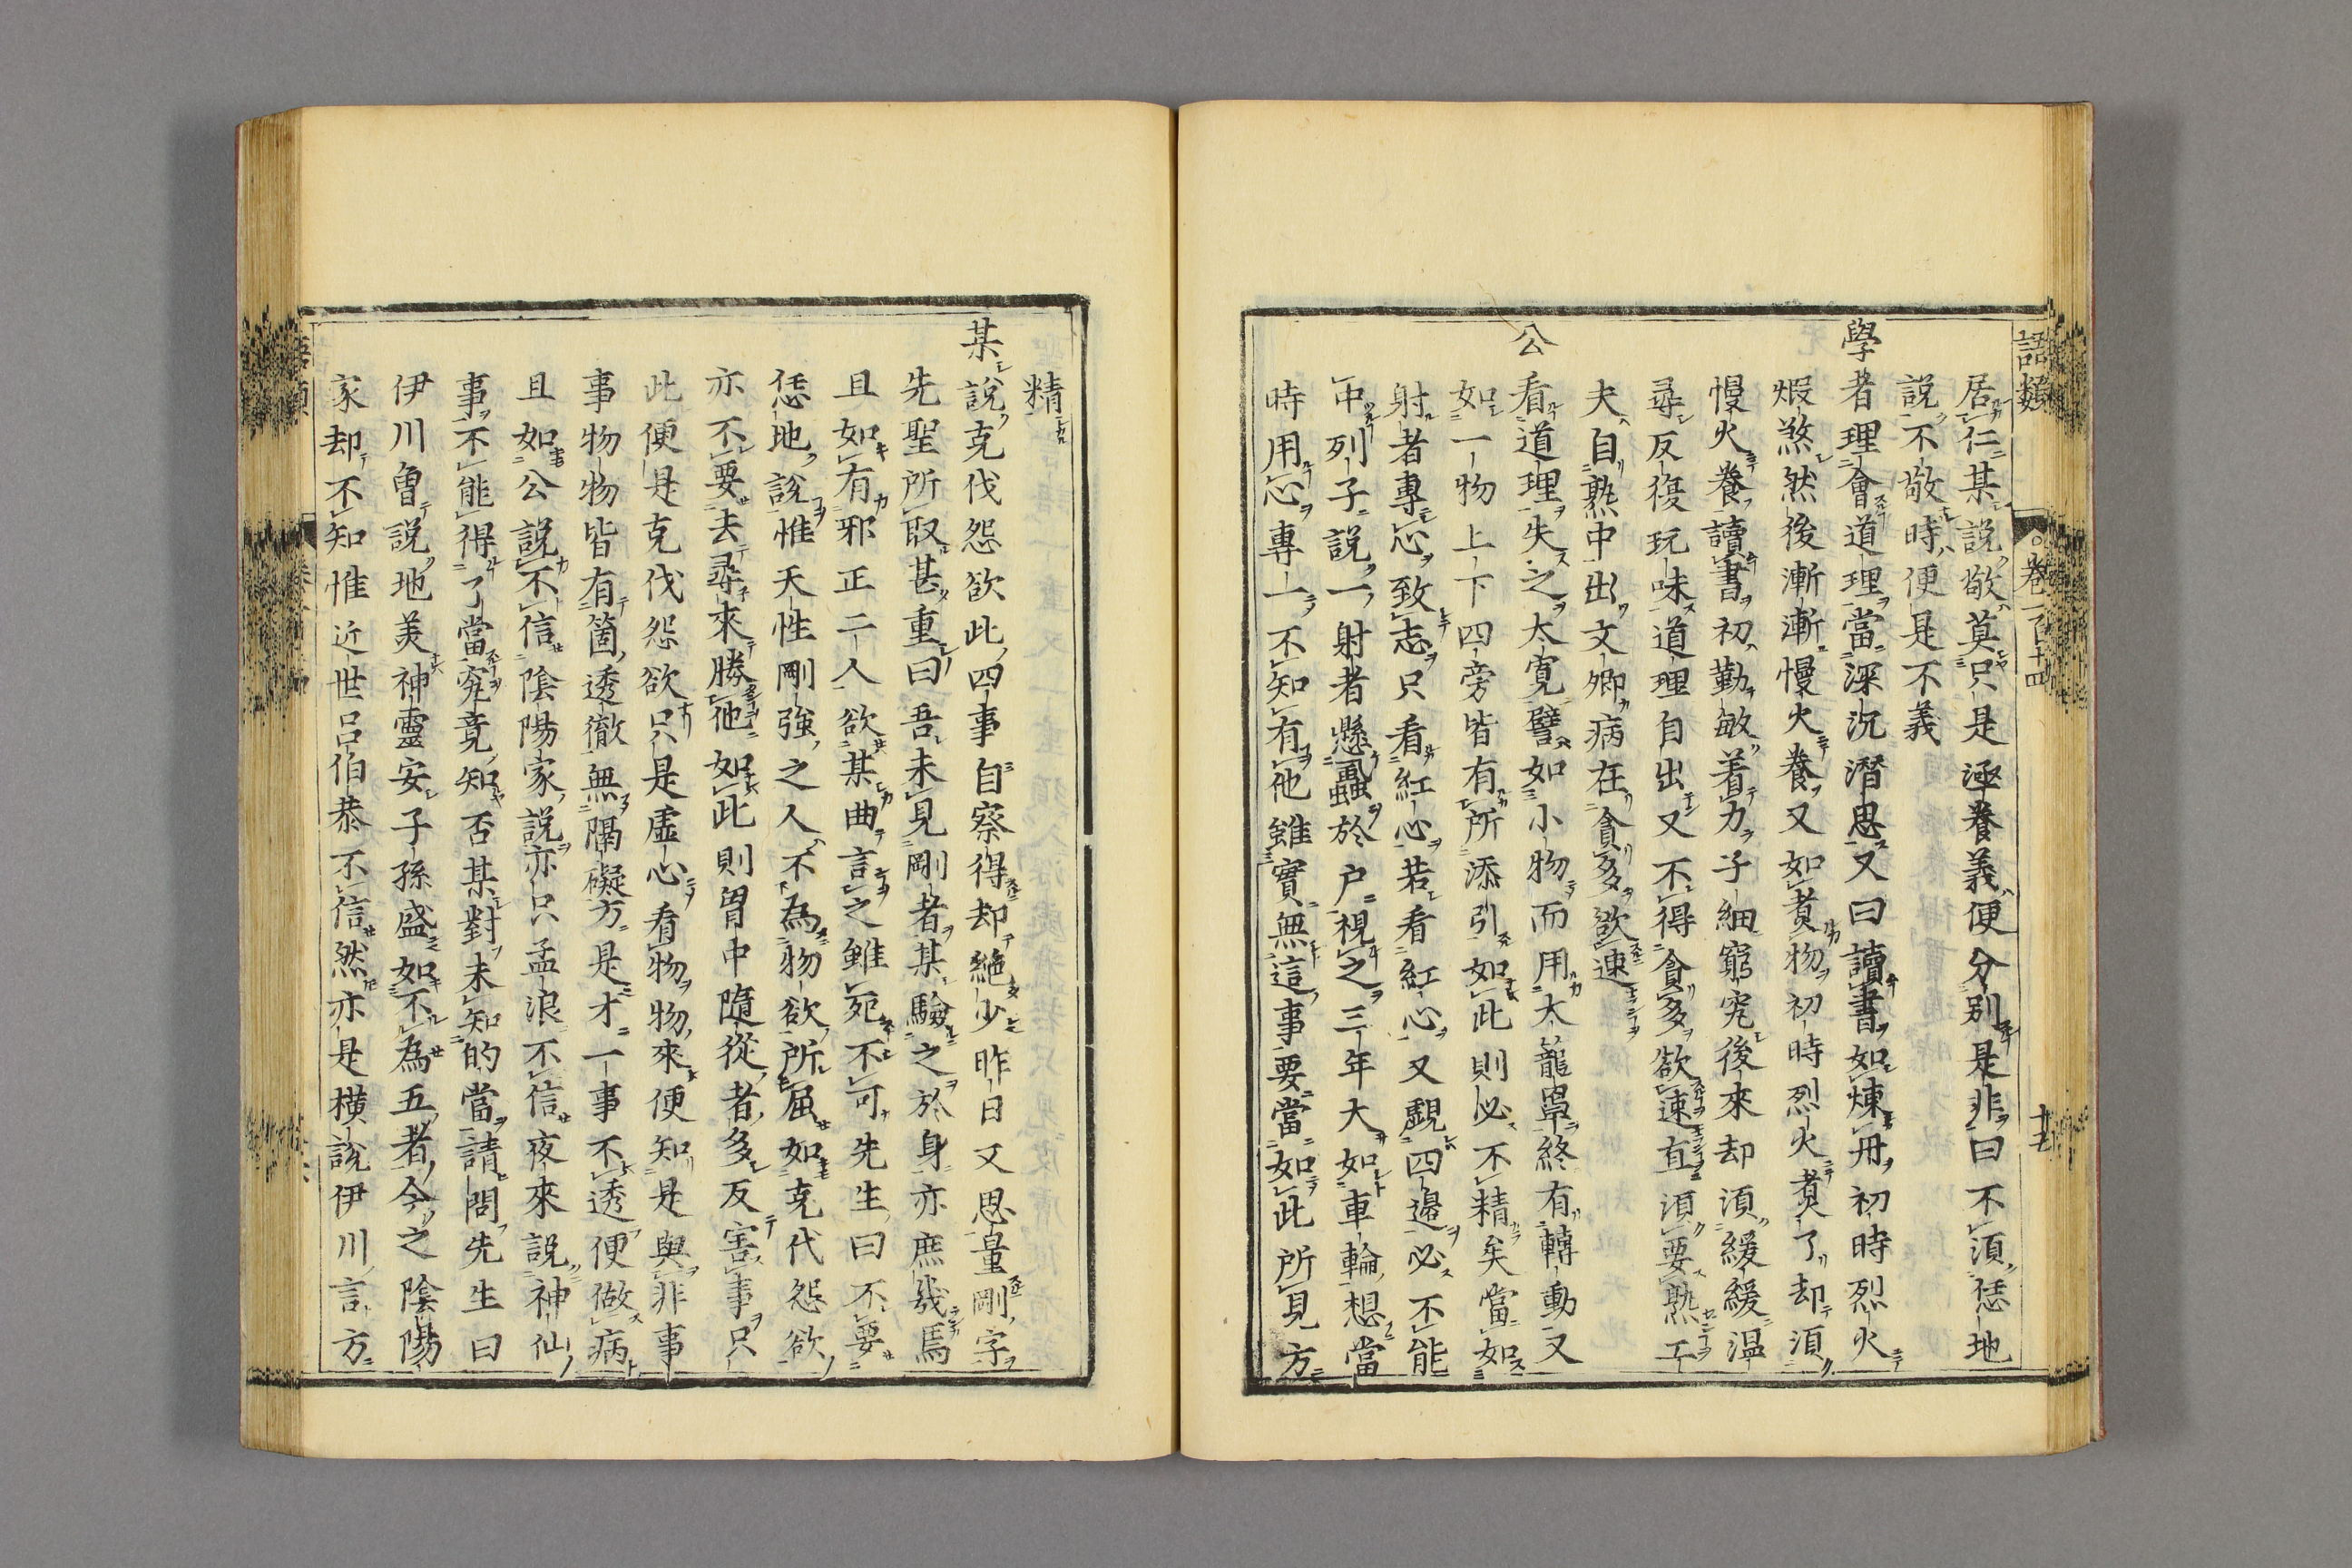 語類
卷一百十四
十五
居仁某說敬莫只是涵養義便分別是非曰不須恁地
說不敬時便是不義
學者理會道理當深沉潛思又曰讀書如煉丹初時烈火
煅煞然後漸漸慢火養又如煮物初時烈火煮了却須
慢火養讀書初勤敏着力子細窮究後來却須緩緩温
尋反復玩味道理自出又不得貪多欲速直須要熟工
夫自熟中出文卿病在貪多欲速
公看道理失之太寬譬如小物而用大籠罩終有轉動又
如一物上下四旁皆有所添引如此則必不精矣當如
射者專心致志只看紅心若看紅心又覷四邊必不能
中列子說一射者懸蝨於户視之三年大如車輪想當
時用心專一不知有他雖實無這事要當如此所見方
精
某說克伐怨欲此四事自察得却絶少昨日又思量剛字
先聖所取甚重曰吾未見剛者某驗之於身亦庶幾焉
且如有邪正二人欲某曲言之雖死不可先生曰不要
恁地說惟天性剛強之人不為物欲所屈如克代怨欲
亦不要去尋來勝他如此則胷中隨從者多反害事只
此便是克伐怨欲只是虛心看物物來便知是與非事
事物物皆有箇透徹無隔礙方是才一事不透便做病
且如公說不信陰陽家說亦只孟浪不信夜來說神仙
事不能得了當究竟知否某對未知的當請問先生曰
伊川曾說地美神靈安子孫盛如不為五者今之陰陽
家却不知惟近世吕伯恭不信然亦是横說伊川言方